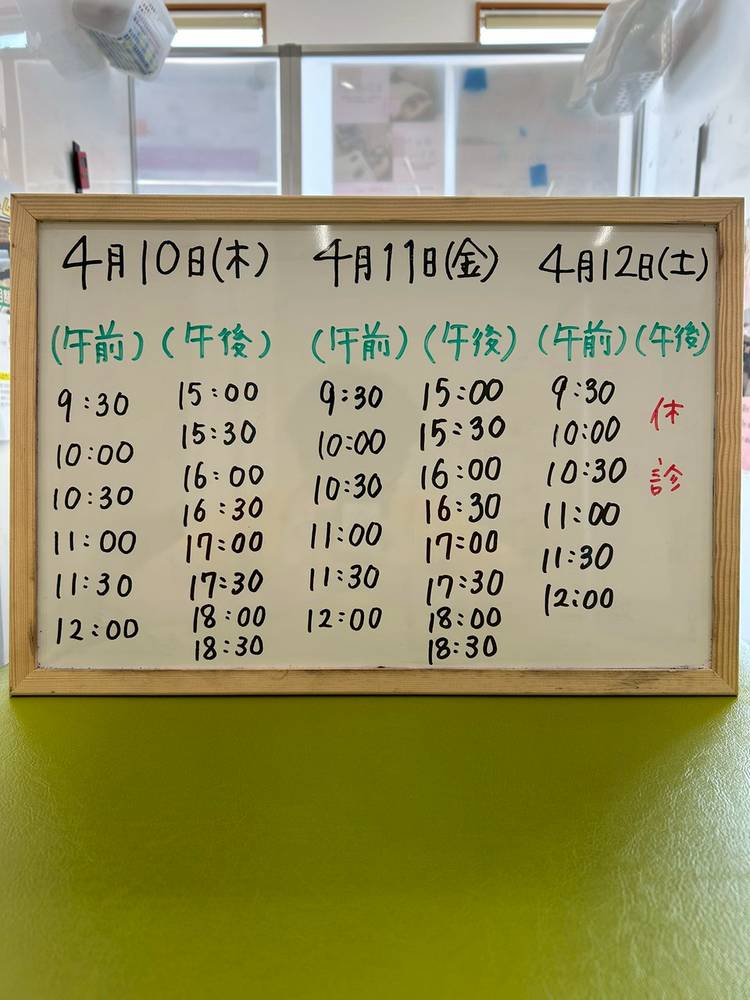 4月10日(木)
(午前)
9:30
10:00
10:30
11:00
11:30
12:00
(午後)
15:00
15:30
16:00
16:30
17:00
17:30
18:00
18:30
4月11日(金)
(午前)
9:30
10:00
10:30
11:00
11:30
12:00
(午後)
15:00
15:30
16:00
16:30
17:00
17:30
18:00
18:30
4月12日(土)
(午前)
9:30
10:00
10:30
11:00
11:30
12:00
(午後)
休診